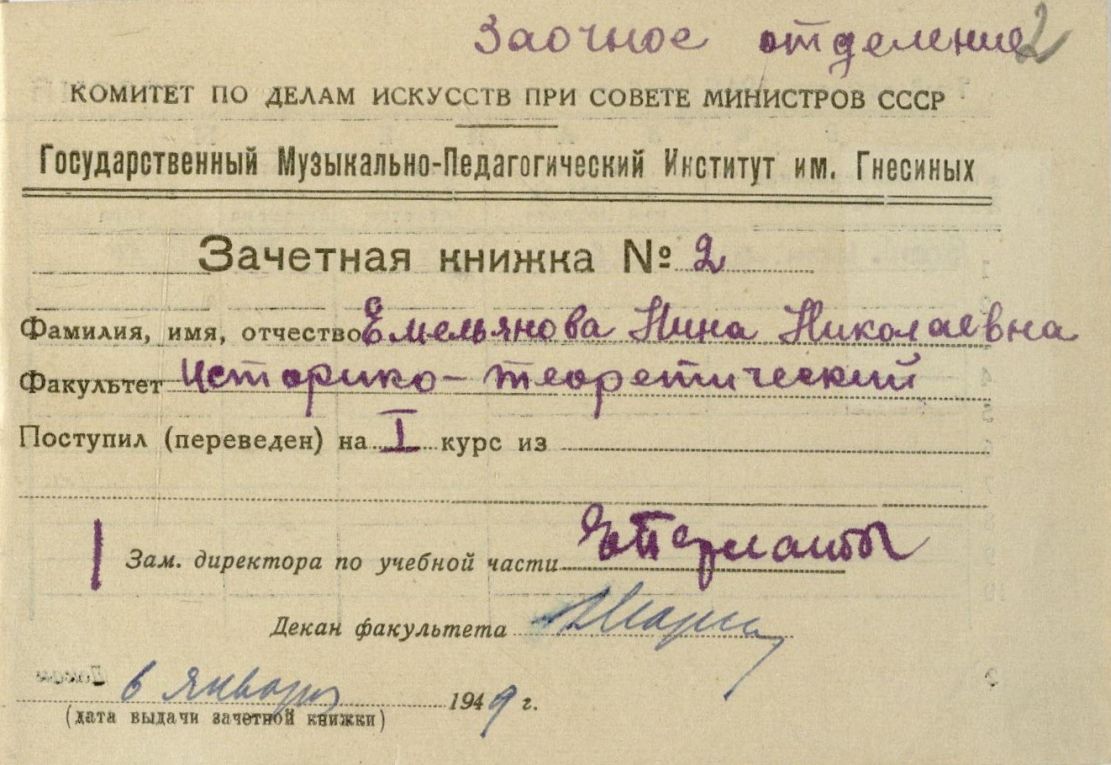 Заочное отделение 2
КОМИТЕТ ПО ДЕЛАМ ИСКУССТВ ПРИ СОВЕТЕ МИНИСТРОВ СССР
Государственный Музыкально-Педагогический Институт им. Гнесиных
Зачетная книжка № 2
Фамилия, имя, отчество Емельянова Нина Николаевна
Факультет Историко-теоретический
Поступил (переведен) на I курс из
Зам. директора по учебной части
Декан факультета
6 января 1949 г.
(дата выдачи зачетной книжки)